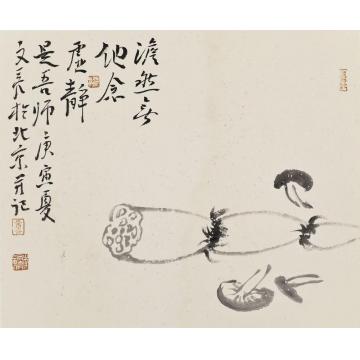 澹然無
他念
虚靜
是吾師庚寅夏
文長於北京并記